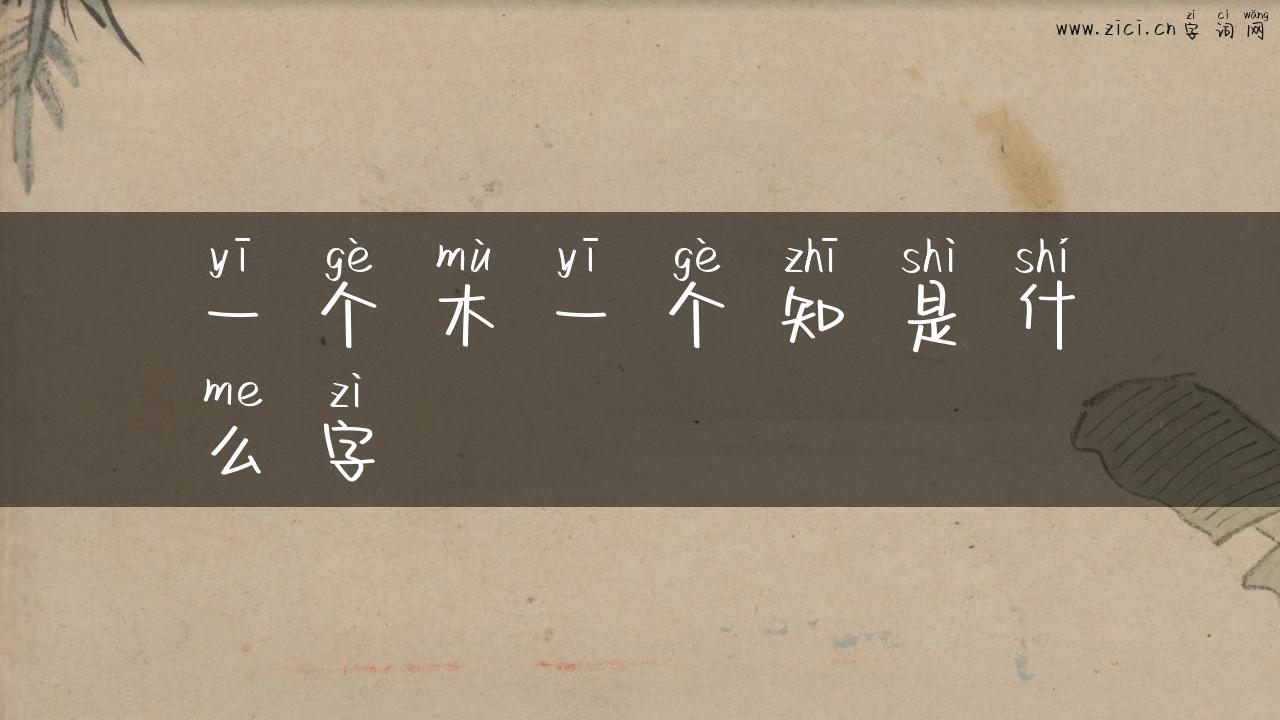 zì cí wǎng
www.zici.cn 字 词 网
yī gè mù yī gè zhī shì shí
一 个 木 一 个 知 是 什
me zì
么 字